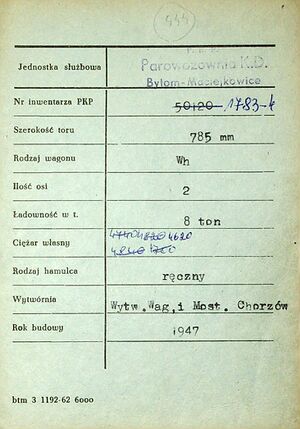 444
Jednostka służbowa
Parowozownia K.D.
Bytom-Maciejkowice
Nr inwentarza PKP 50120 1783-k
Szerokość toru 785 mm
Rodzaj wagonu Wh
Ilość osi 2
Ładowność w t. 8 ton
Ciężar własny 4620
Rodzaj hamulca ręczny
Wytwórnia Wytw.Wag.i Most. Chorzów
Rok budowy 1947
btm 3 1192-62 6000